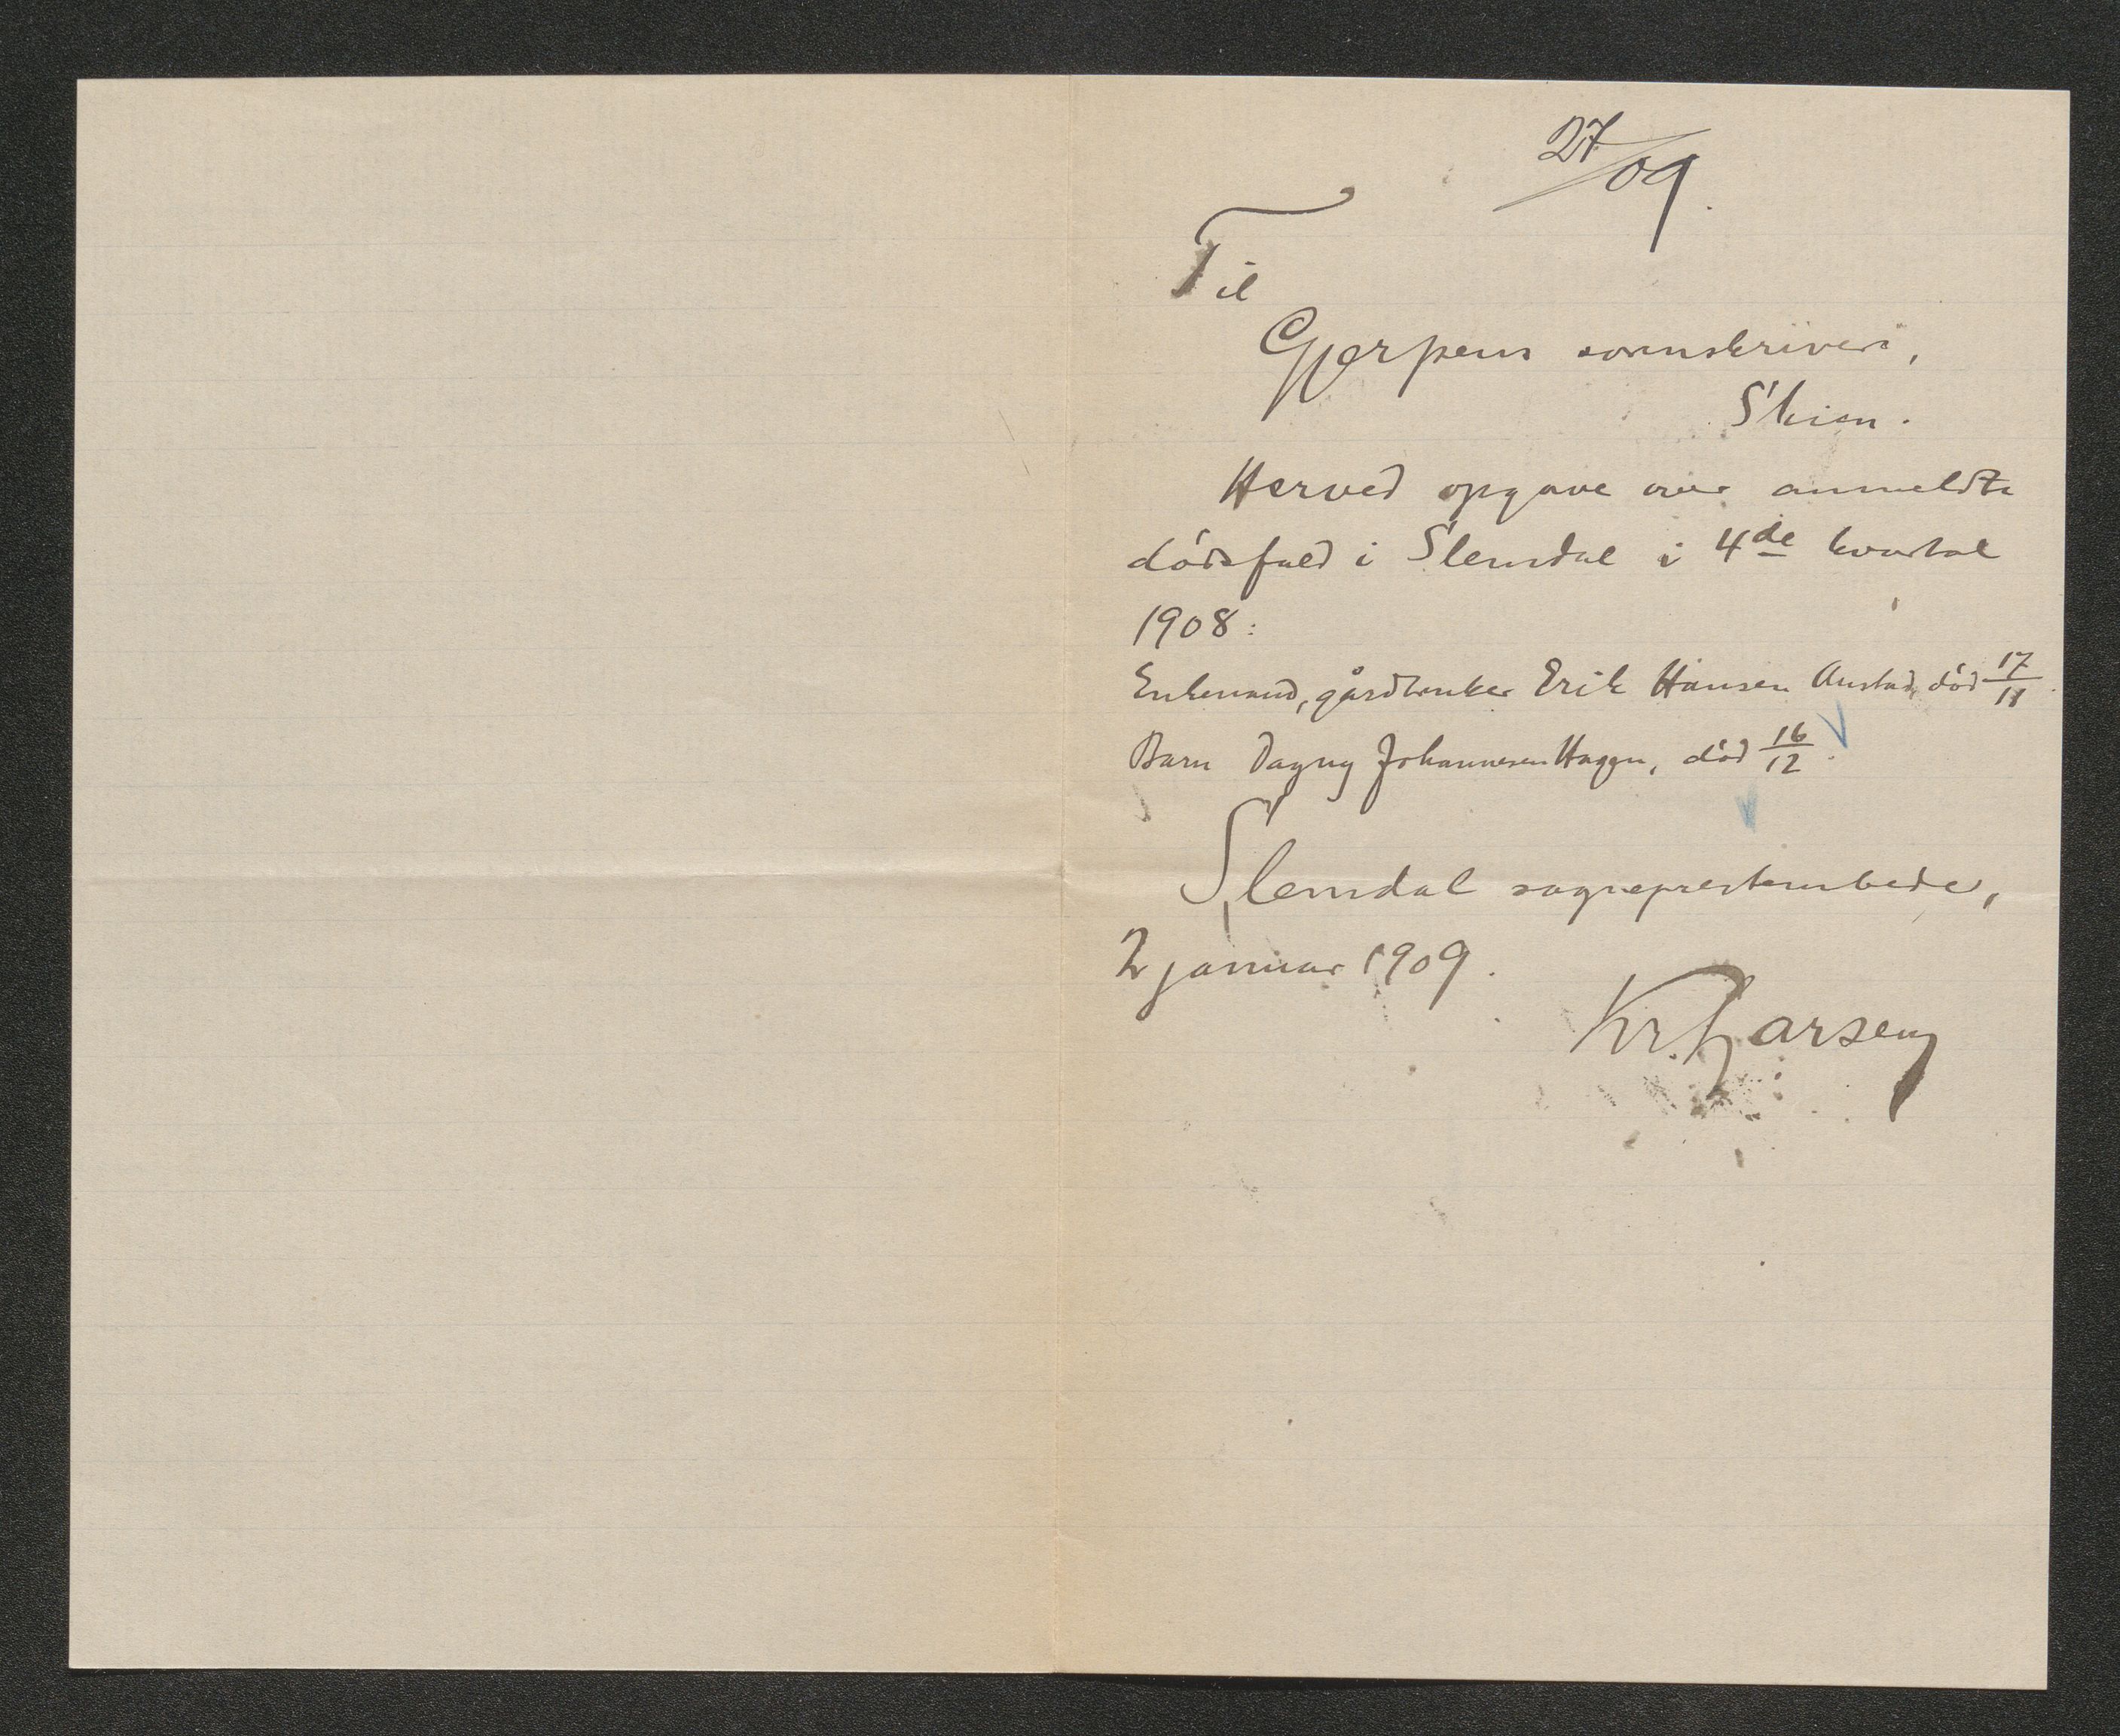 27/09.
Til
Gjerpens sorenskriveri,
Skien.
Herved opgave over anmeldte
dødsfald i Slemdal i 4de kvartal
1908:
Enkemand, gårdbruker Erik Hansen Austad, død 17/11.
Barn Dagny Johannesen Haggn, død 16/12.
Slemdal sogneprestembede,
2 januar 1909.
Kr. Larsen